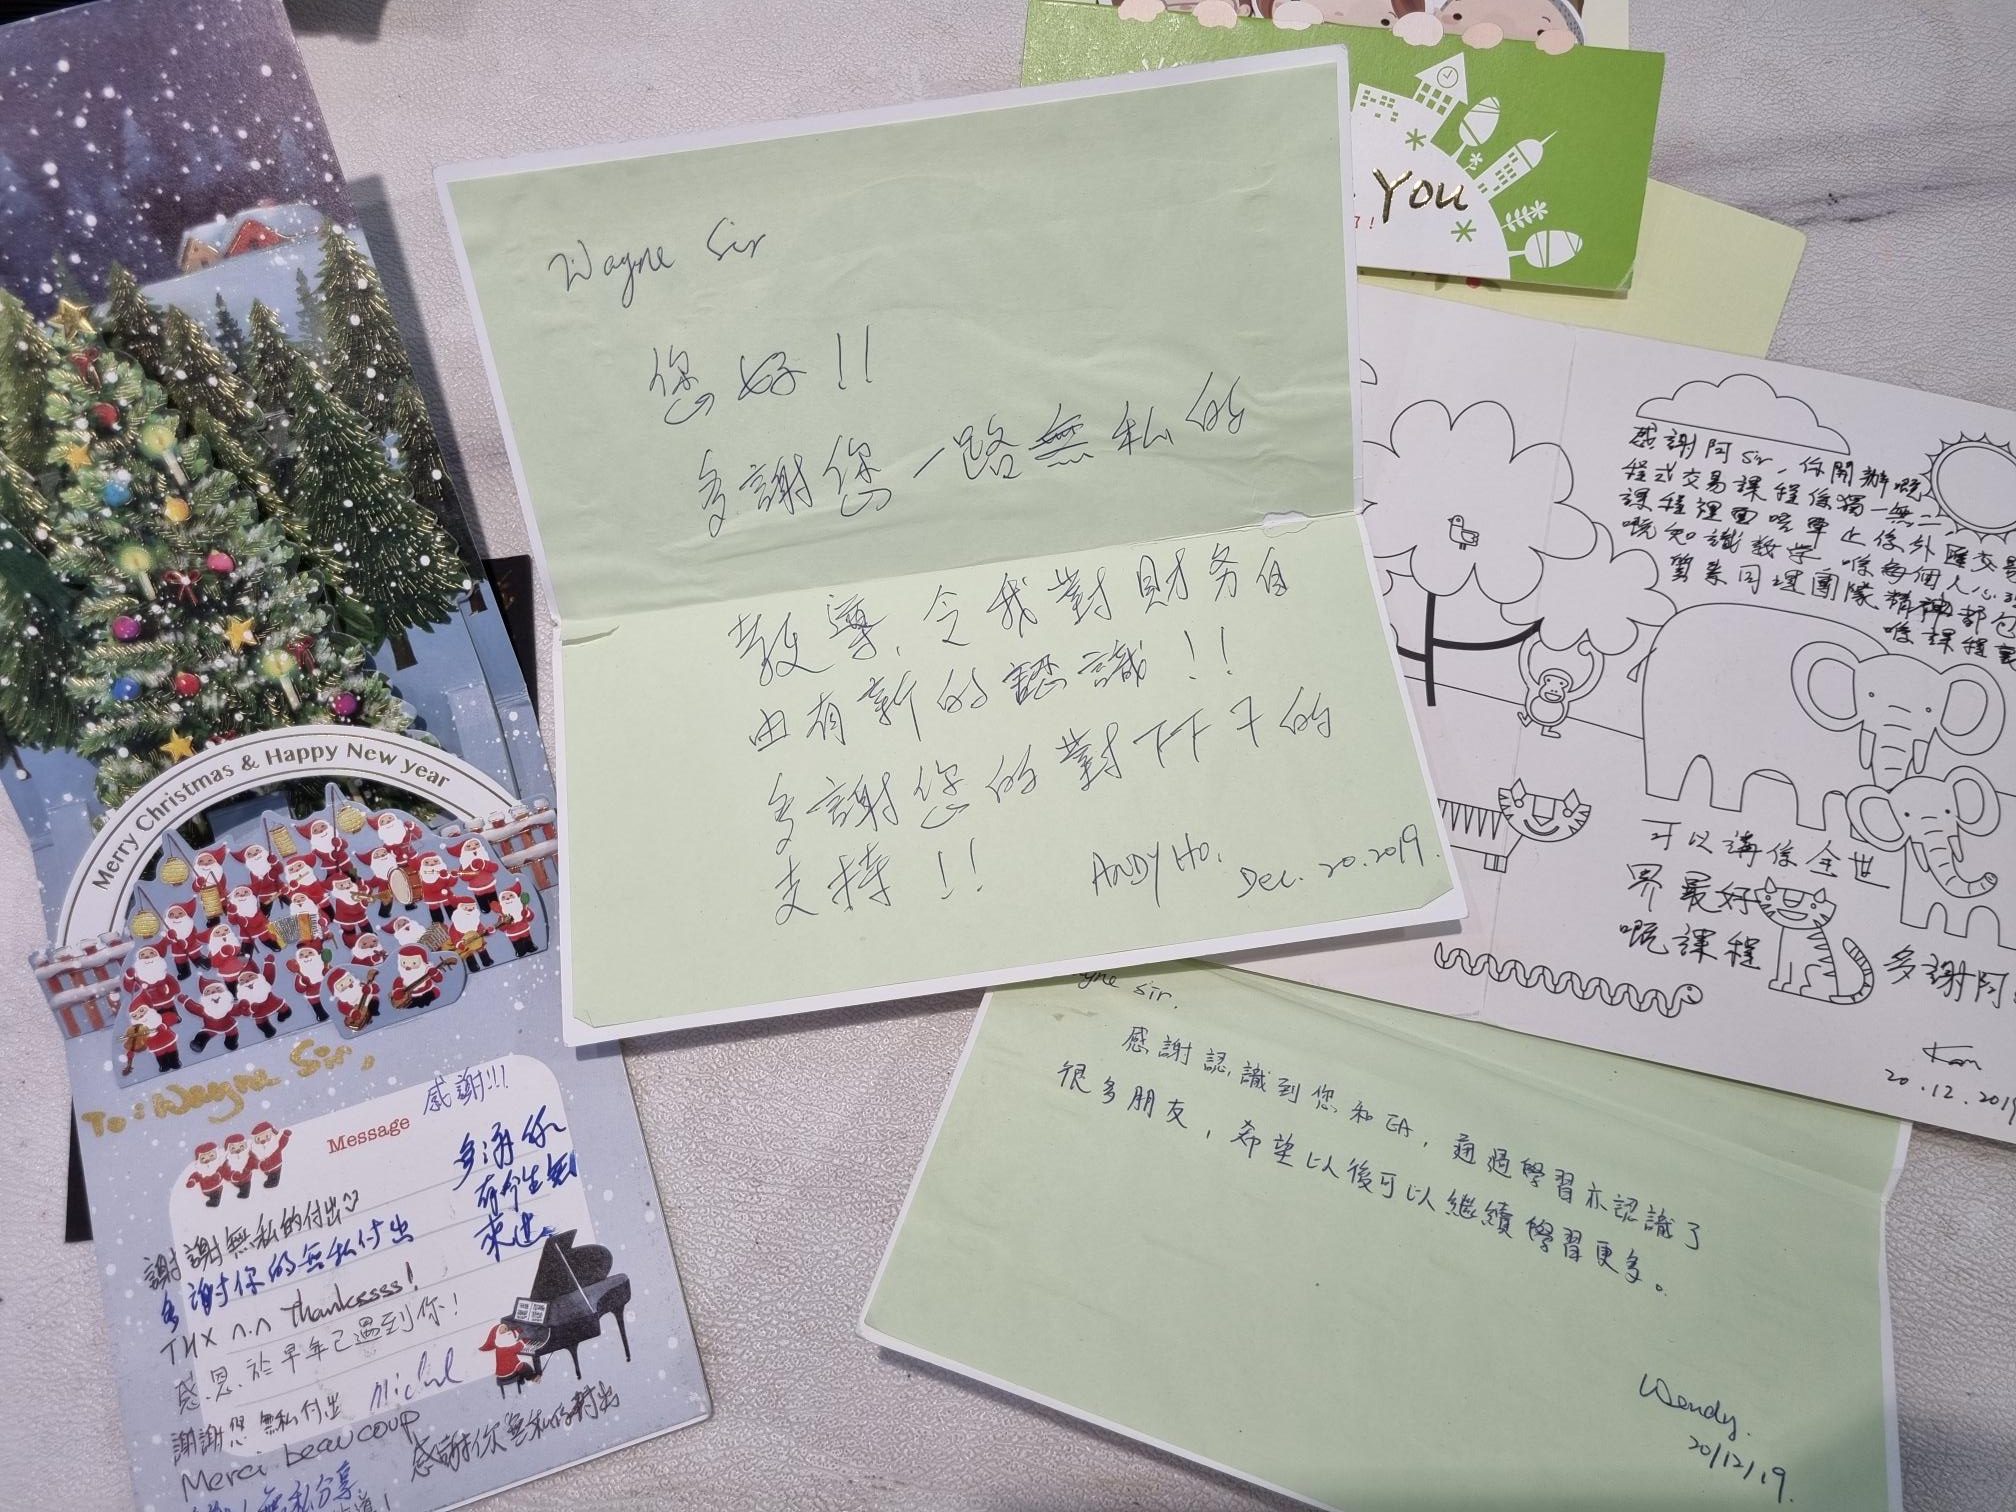 Wayne Sir
您好!!
多謝您一路無私的
教導,令我對財務自
由有新的認識!!
多謝您的對下下7的
支持!!
ANDY HO.
Dec. 20. 2019.
YOU
感謝阿Sir,你開辦嘅
程式交易課程係獨一無二
課程裡面唔單止係外匯交易
嘅知識教学
質素同埋團隊精神都包
喺課程裏
可以講係全世
界最好
嘅課程
多謝阿
Kan
20.12.2019
Sir.
感謝認識到您和EA,通過學習亦認識了
很多朋友,希望以後可以繼續學習更多。
Wendy.
20/12/19.
Merry Christmas & Happy New year
To: Wayne Sir,
Message
感謝!!!
多謝你
謝謝無私的付出
多謝你的無私付出
THX n.n Thankssss!
感恩於早年已遇到你!
謝謝您無私付出
Merci beaucoup
感謝你無私的付出
無私分享